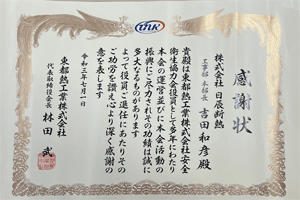 tnk
感謝状
株式会社 日辰断熱
工事部 本部長
吉田和彦殿
貴殿は東都熱工業株式会社安全
衛生協力会役員として多年にわたり
本会の運営並びに本会活動の
振興にご尽力されその功績は誠に
多大なるものがあります
よって役員ご退任にあたりその
ご功労を讃え心より深く感謝の
意を表します
令和三年七月一日
東都熱工業株式会社
代表取締役会長 林田 武